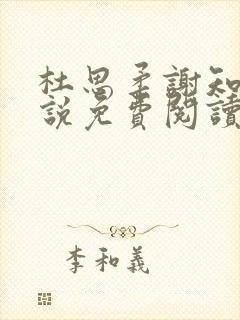 杜思柔謝知
說免費閱讀
李和義